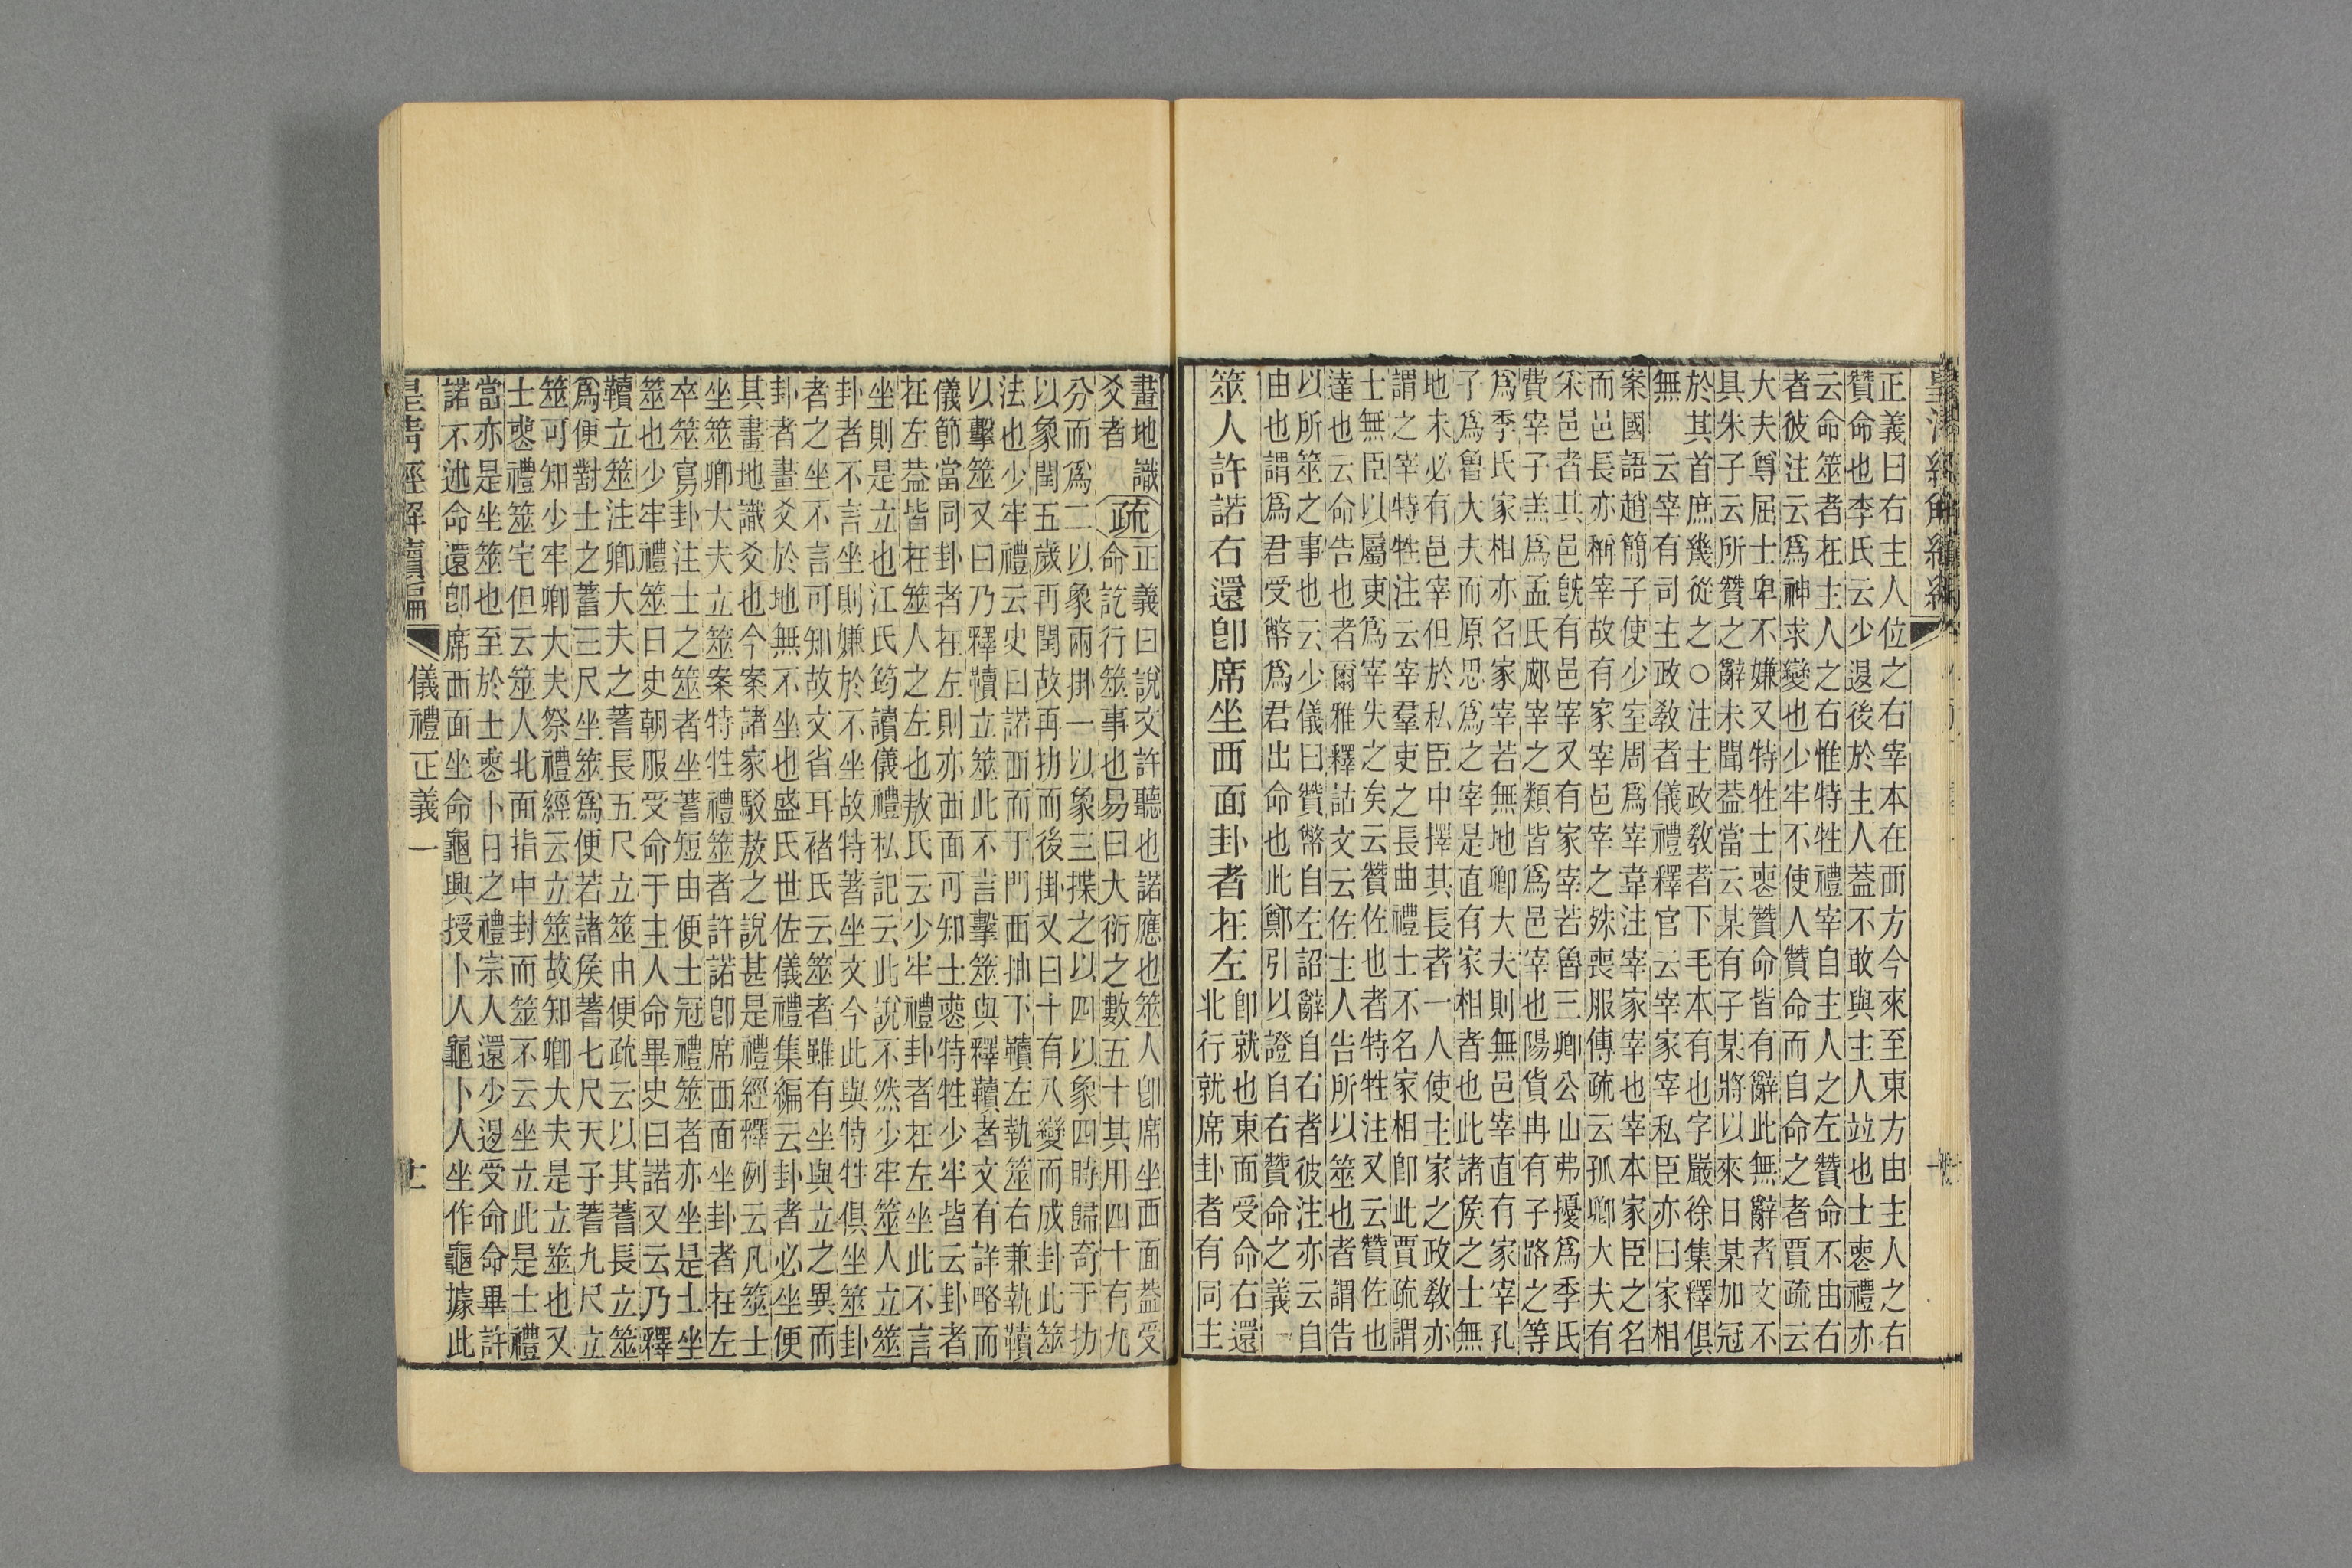 皇清經解續編
正義曰右主人位之右宰本在西方今來至東方由主人之右
贊命也李氏云少退後於主人葢不敢與主人竝也士喪禮亦
云命筮者在主人之右惟特牲禮宰自主人之左贊命不由右
者彼注云爲神求變也少牢不使人贊命而自命之者賈疏云
大夫尊屈士卑不嫌又特牲士喪贊命皆有辭此無辭者文不
具朱子云所贊之辭未聞葢當云某有子某將以來日某加冠
於其首庶幾從之○注主政敎者下毛本有也字嚴徐集釋俱
無　云宰有司主政敎者儀禮釋官云宰家宰私臣亦曰家相
案國語趙簡子使少室周爲宰韋注宰家宰也宰本家臣之名
而邑長亦稱宰故有家宰邑宰之殊喪服傳疏云孤卿大夫有
采邑者其邑旣有邑宰又有家宰若魯三卿公山弗擾爲季氏
費宰子羔爲孟氏郕宰之類皆爲邑宰也陽貨冉有子路之等
爲季氏家相亦名家宰若無地卿大夫則無邑宰直有家宰孔
子爲魯大夫而原思爲之宰是直有家相者也此諸侯之士無
地未必有邑宰但於私臣中擇其長者一人使主家之政敎亦
謂之宰特牲注云宰羣吏之長曲禮士不名家相卽此賈疏謂
士無臣以屬吏爲宰失之矣云贊佐也者特牲注又云贊佐也
達也云命告也者爾雅釋詁文云佐主人告所以筮也者謂告
以所筮之事也云少儀曰贊幣自左詔辭自右者彼注亦云自
由也謂爲君受幣爲君出命也此鄭引以證自右贊命之義
筮人許諾右還卽席坐西面卦者在左
卽就也東面受命右還
北行就席卦者有同主
畫地識
爻者
疏
正義曰說文許聽也諾應也筮人卽席坐西面葢受
命訖行筮事也易曰大衍之數五十其用四十有九
分而爲二以象兩掛一以象三揲之以四以象四時歸奇于扐
以象閏五歲再閏故再扐而後掛又曰十有八變而成卦此筮
法也少牢禮云史曰諾西而于門西抽下韇左執筮右兼執韇
以擊筮又曰乃釋韇立筮此不言擊筮與釋韇者文有詳略而
儀節當同卦者在左則亦西面可知士喪特牲少牢皆云卦者
在左葢皆在筮人之左也敖氏云少牢禮卦者在左坐此不言
坐則是立也江氏筠讀儀禮私記云此說不然少牢筮人立筮
卦者不言坐則嫌於不坐故特著坐文今此與特牲俱坐筮卦
者之坐不言可知故文省耳褚氏云筮者雖有坐與立之異而
卦者畫爻於地無不坐也盛氏世佐儀禮集編云卦者必坐便
其畫地識爻也今案諸家駁敖之說甚是禮經釋例云凡筮士
坐筮卿大夫立筮案特牲禮筮者許諾卽席西面坐卦者在左
卒筮寫卦注士之筮者坐蓍短由便士冠禮筮者亦坐是士坐
筮也少牢禮筮曰史朝服受命于主人命畢史曰諾又云乃釋
韇立筮注卿大夫之蓍長五尺立筮由便疏云以其蓍長立筮
爲便對士之蓍三尺坐筮爲便若諸侯蓍七尺天子蓍九尺立
筮可知少牢卿大夫祭禮經云立筮故知卿大夫是立筮也又
士喪禮筮宅但云筮人北面指中封而筮不云坐立此是士禮
當亦是坐筮也至於士喪卜日之禮宗人還少退受命命畢許
諾不述命還卽席西面坐命龜興授卜人龜卜人坐作龜據此
皇清經解續編　儀禮正義一　十一